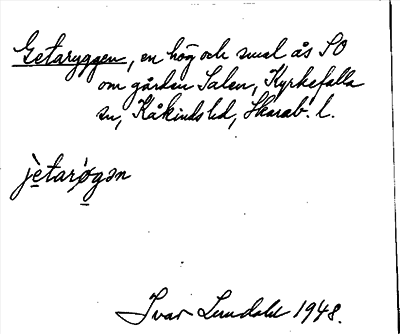 Getaryggen, en hög och smal ås SO
om gården Salen, Kyrkefalla
sn, Kåkinds hd, Skarab. l.
jètarø̀gən
Ivar Lundahl 1948.